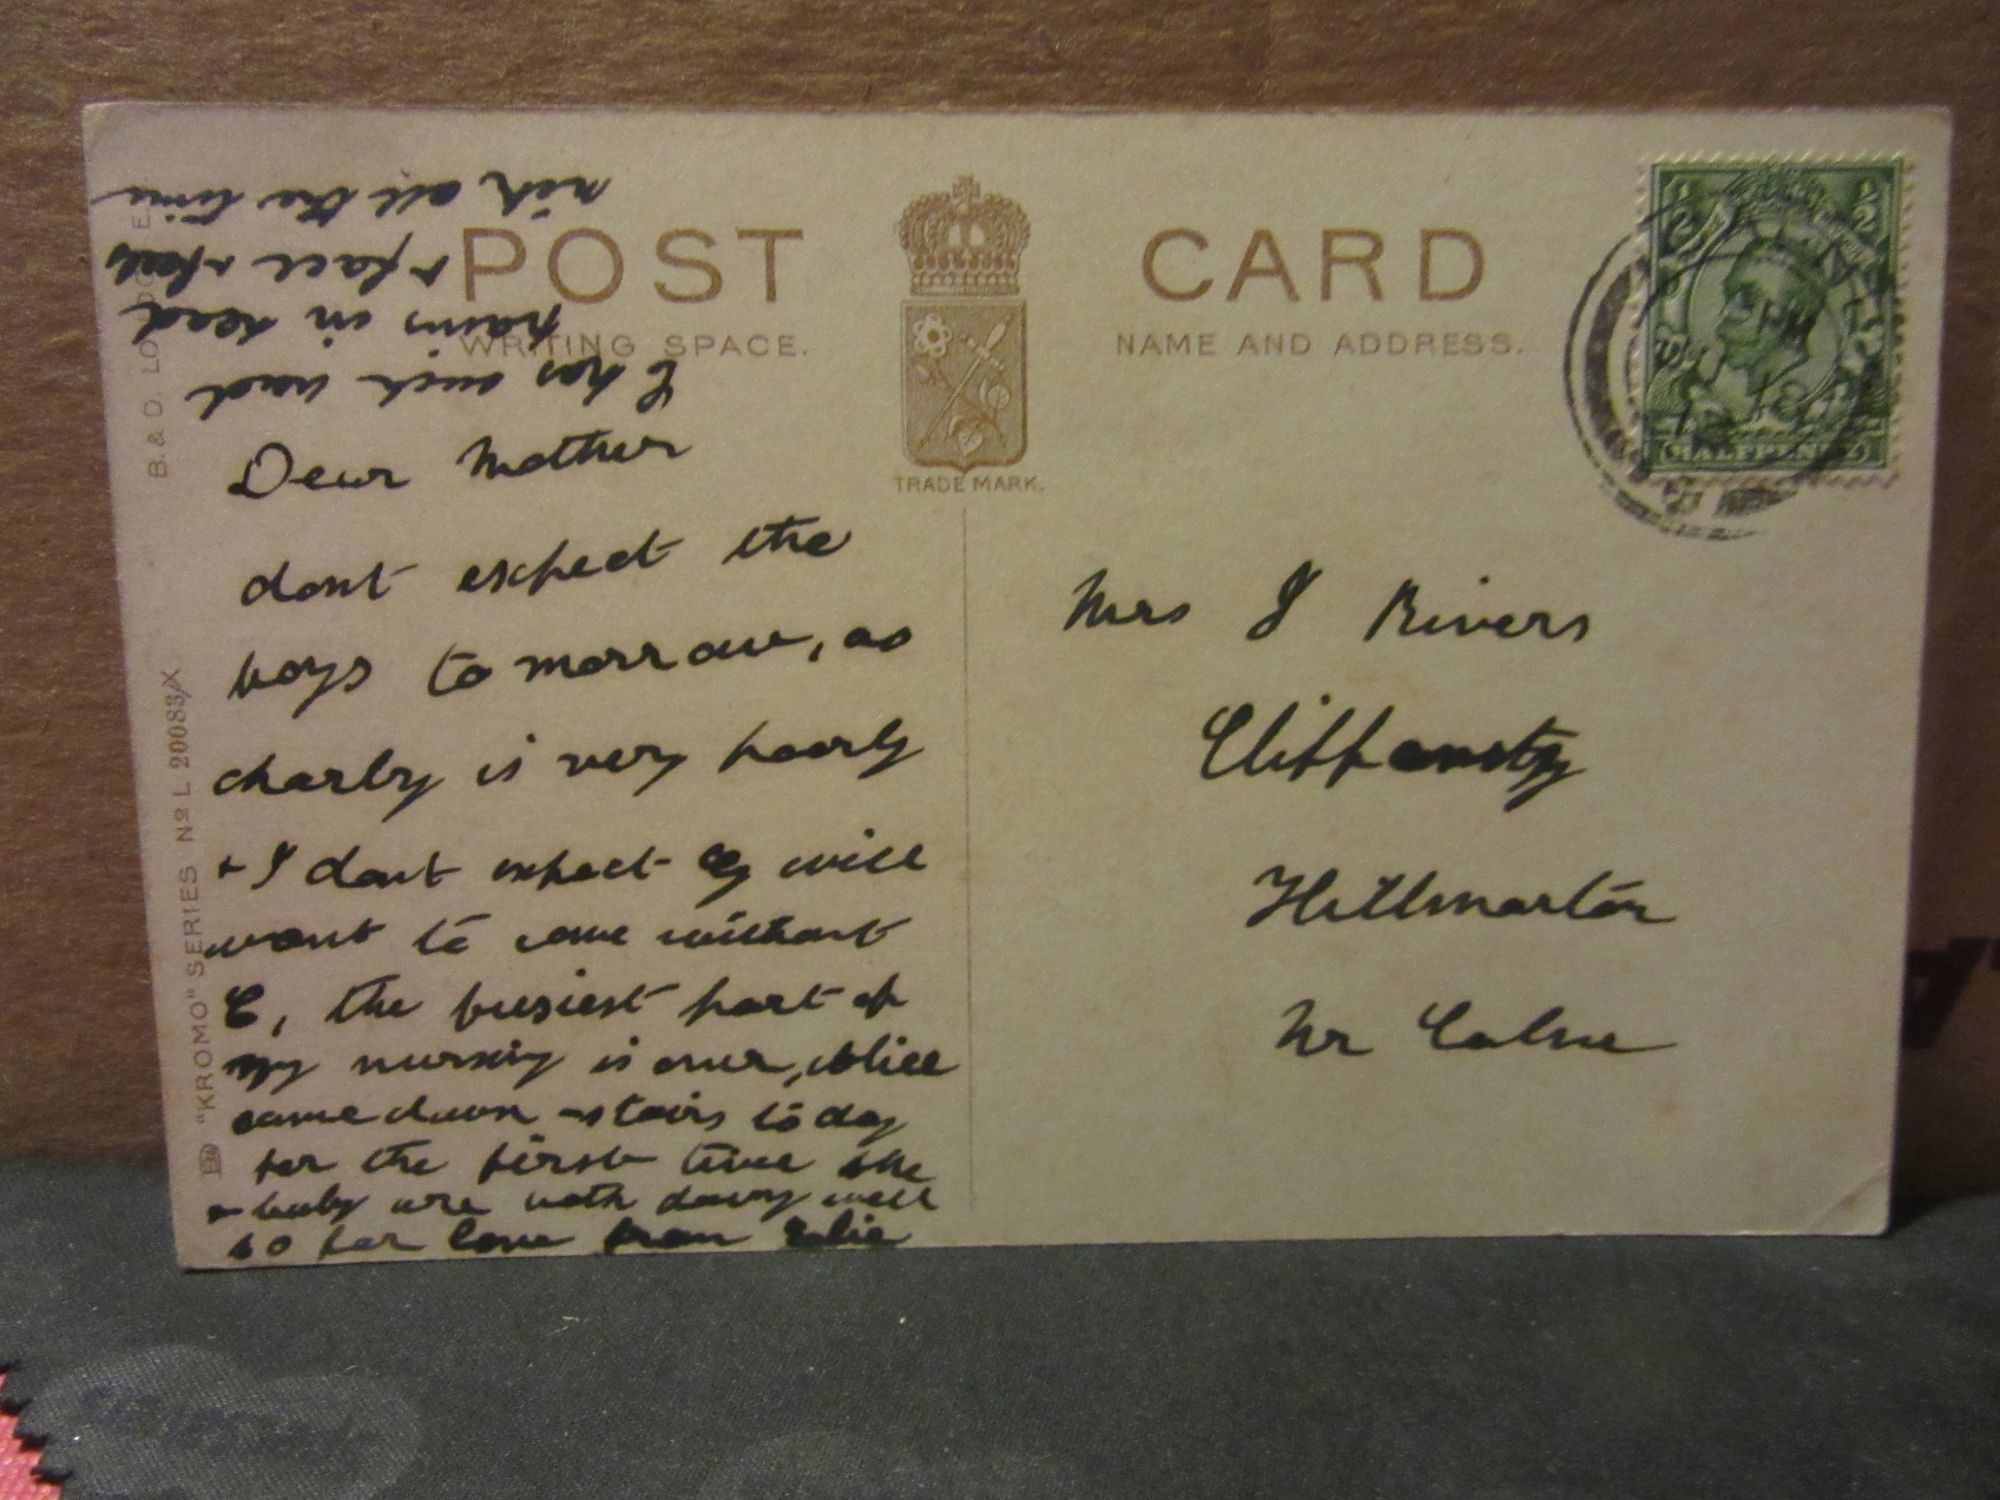 POST CARD
WRITING SPACE.
NAME AND ADDRESS.
TRADE MARK.
B. & D. LONDON E.
"KROMO" SERIES Nº L 20083/X
HALFPENNY
1/2 1/2
Dear Mother
dont expect the
boys to morrow, as
charly is very poorly
+ I dont expect will
want to come without
C, the busiest part of
my nursing is over, Alice
came down-stairs to day
for the first time she
+ baby are both doing well
so far love from
C has such bad
pains in head
+ face + feels
sick all the time
Mrs J Rivers
Cliff
Hillmarton
Nr Calne